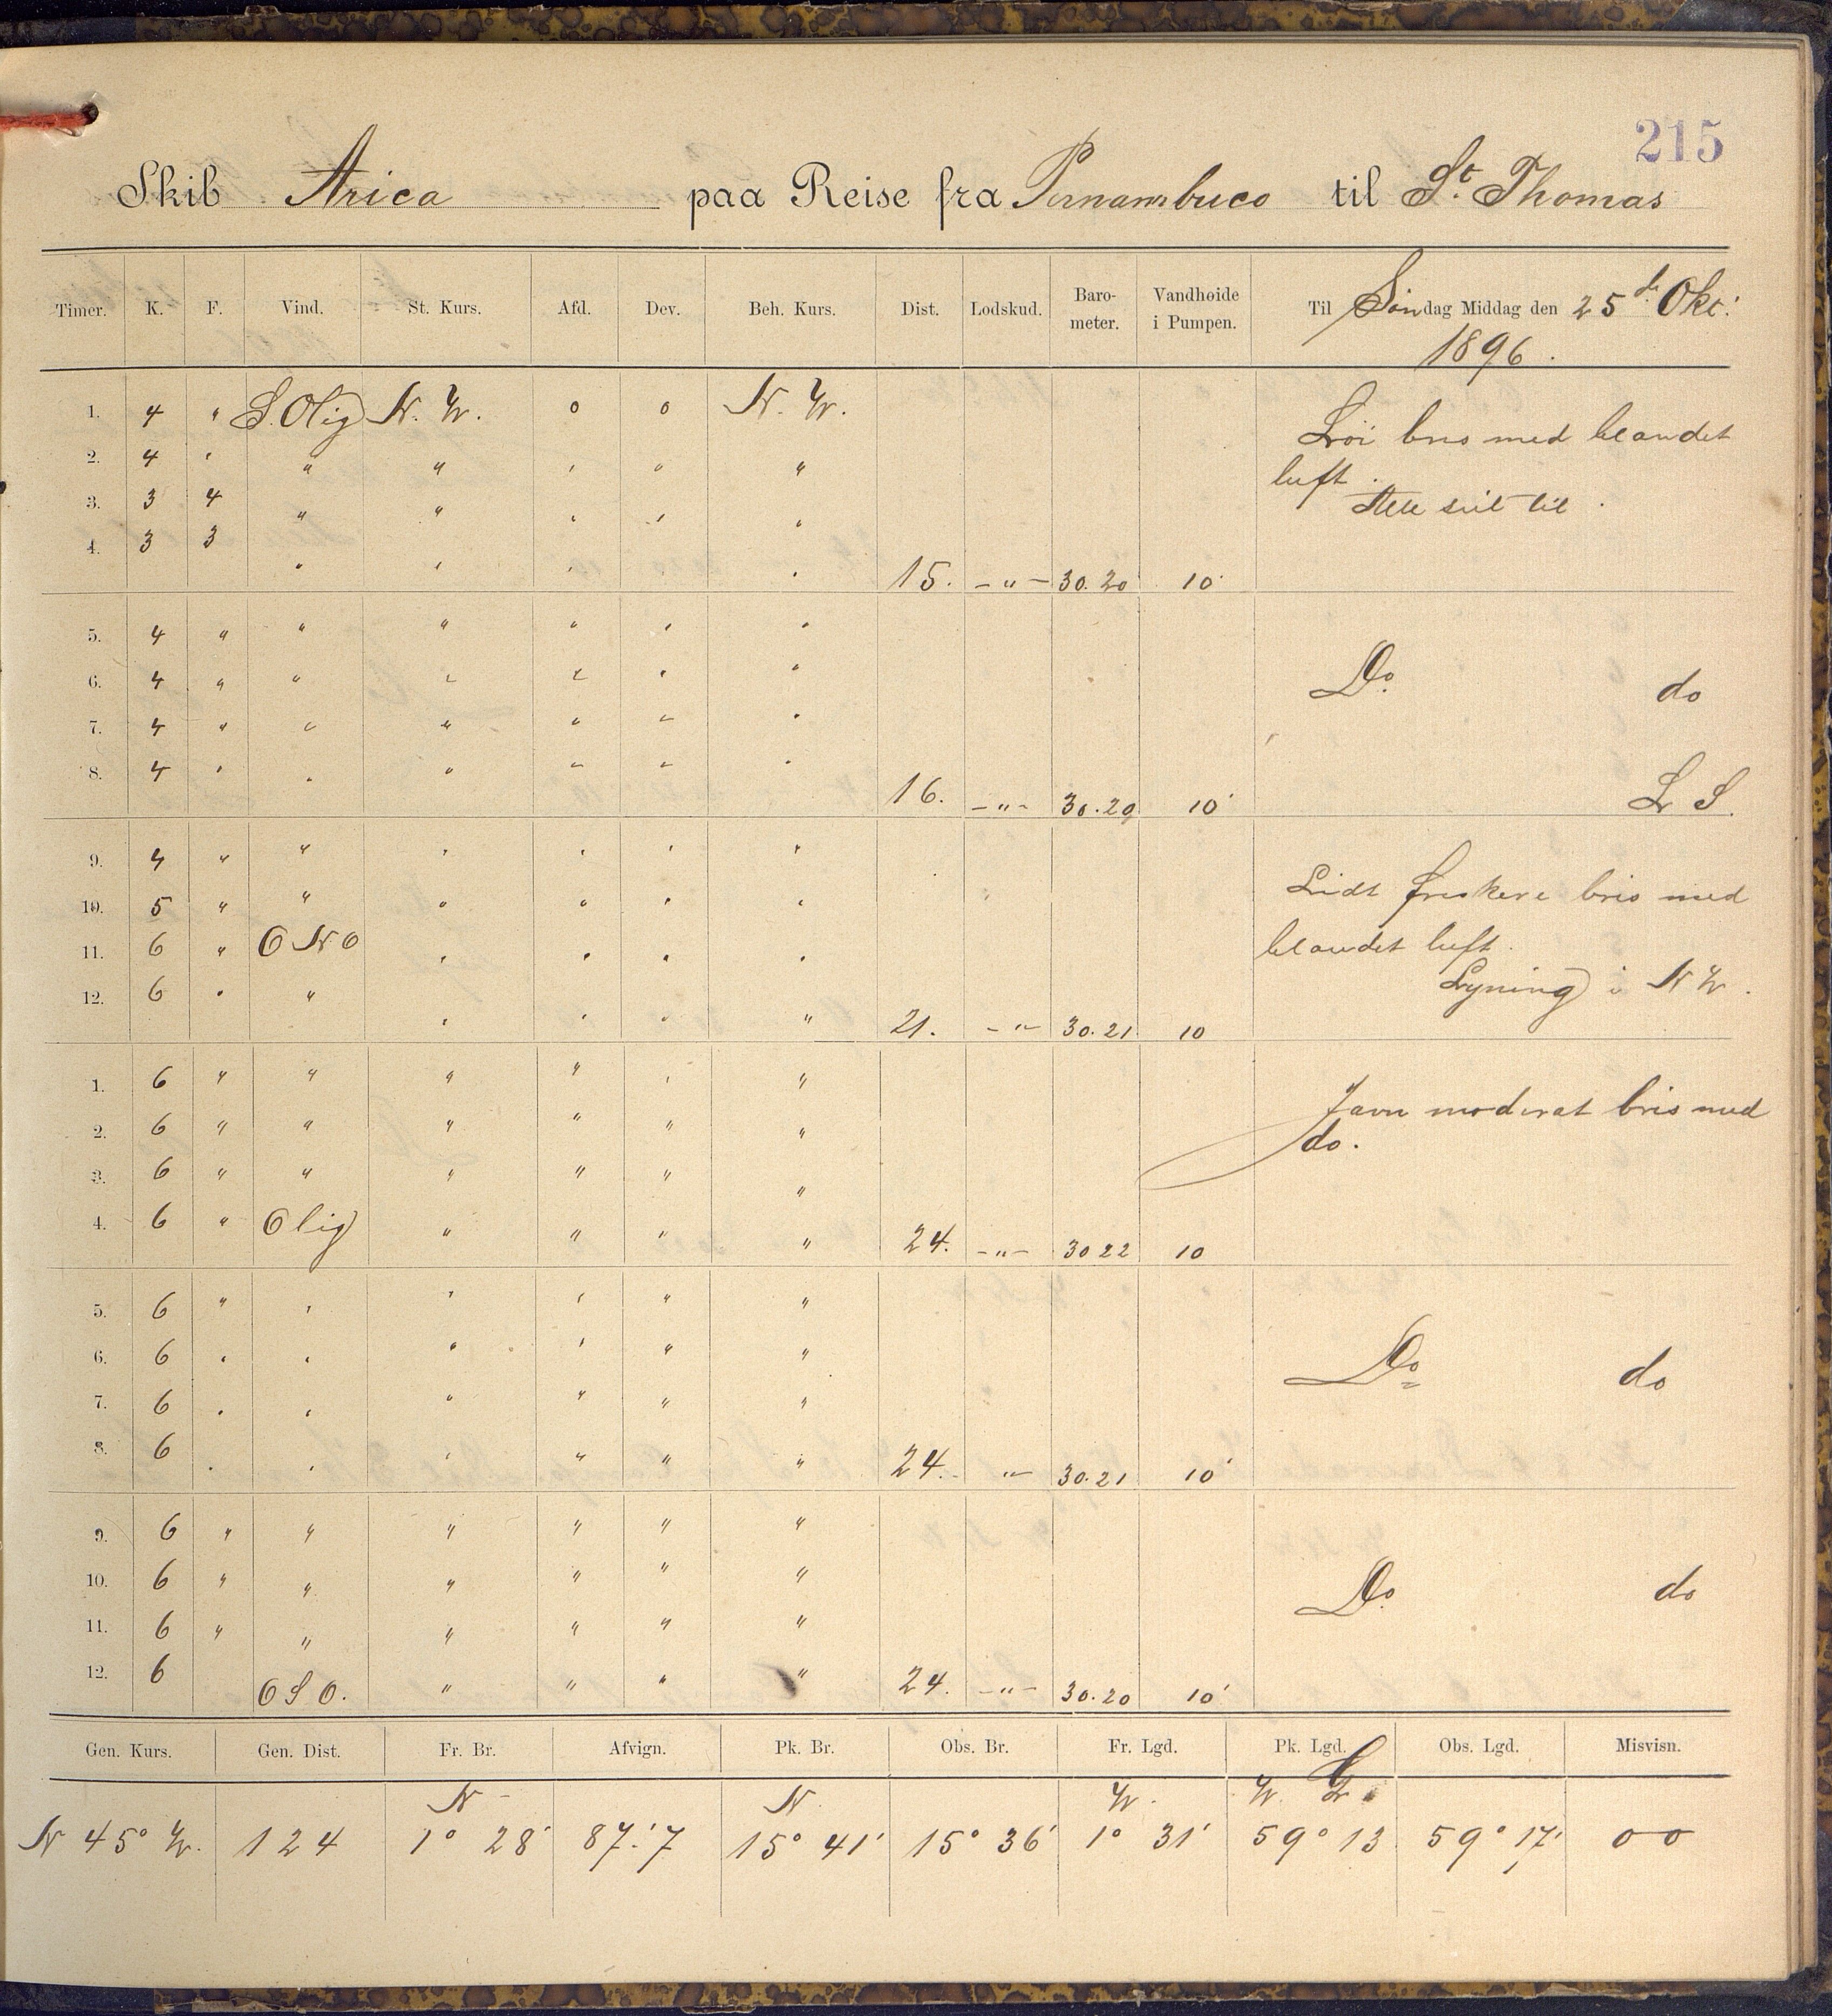 215
Skib Arica paa Reise fra Pernambuco til St. Thomas
Timer. K. F. Vind. St. Kurs. Afd. Dev. Beh. Kurs. Dist. Lodskud. Baro-meter. Vandhøide i Pumpen. Til Søndag Middag den 25de Okt: 1896.
1. 4 " S.Olig N.W. 0 0 N.W. Løi bris med blandet
2. 4 " " " " " " luft.
3. 3 4 " " " " " Alle seil til.
4. 3 3 " " " " " 15. -"- 30.20 10'
5. 4 " " " " " "
6. 4 " " " " " " Do. do
7. 4 " " " " " "
8. 4 " " " " " " 16. -"- 30.20 10' L S.
9. 4 " " " " " " Lidt friskere bris med
10. 5 " " " " " "
11. 6 " ONO " " " " blandet luft.
12. 6 " " " " " " 21. -"- 30.21 10 Lyning i NW.
1. 6 " " " " " " Javn moderat bris med
2. 6 " " " " " " do.
3. 6 " " " " " "
4. 6 " Olig " " " " 24. -"- 30 22 10
5. 6 " " " " " "
6. 6 " " " " " " Do do
7. 6 " " " " " "
8. 6 " " " " " " 24. -"- 30.21 10'
9. 6 " " " " " "
10. 6 " " " " " " Do. do
11. 6 " " " " " "
12. 6 OSO. " " " " 24. -"- 30.20 10'
Gen. Kurs. Gen. Dist. Fr. Br. Afvign. Pk. Br. Obs. Br. Fr. Lgd. Pk. Lgd. Obs. Lgd. Misvisn.
N N. W. W.
N 45° W. 124 1° 28' 87.'7 15° 41' 15° 36' 1° 31' 59° 13 59° 17' 00